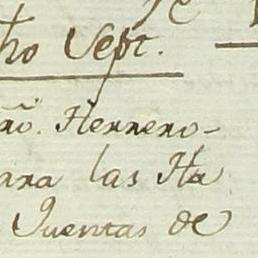 ho Sept.
ro. Herrero-
ara las Ha
Quentas de